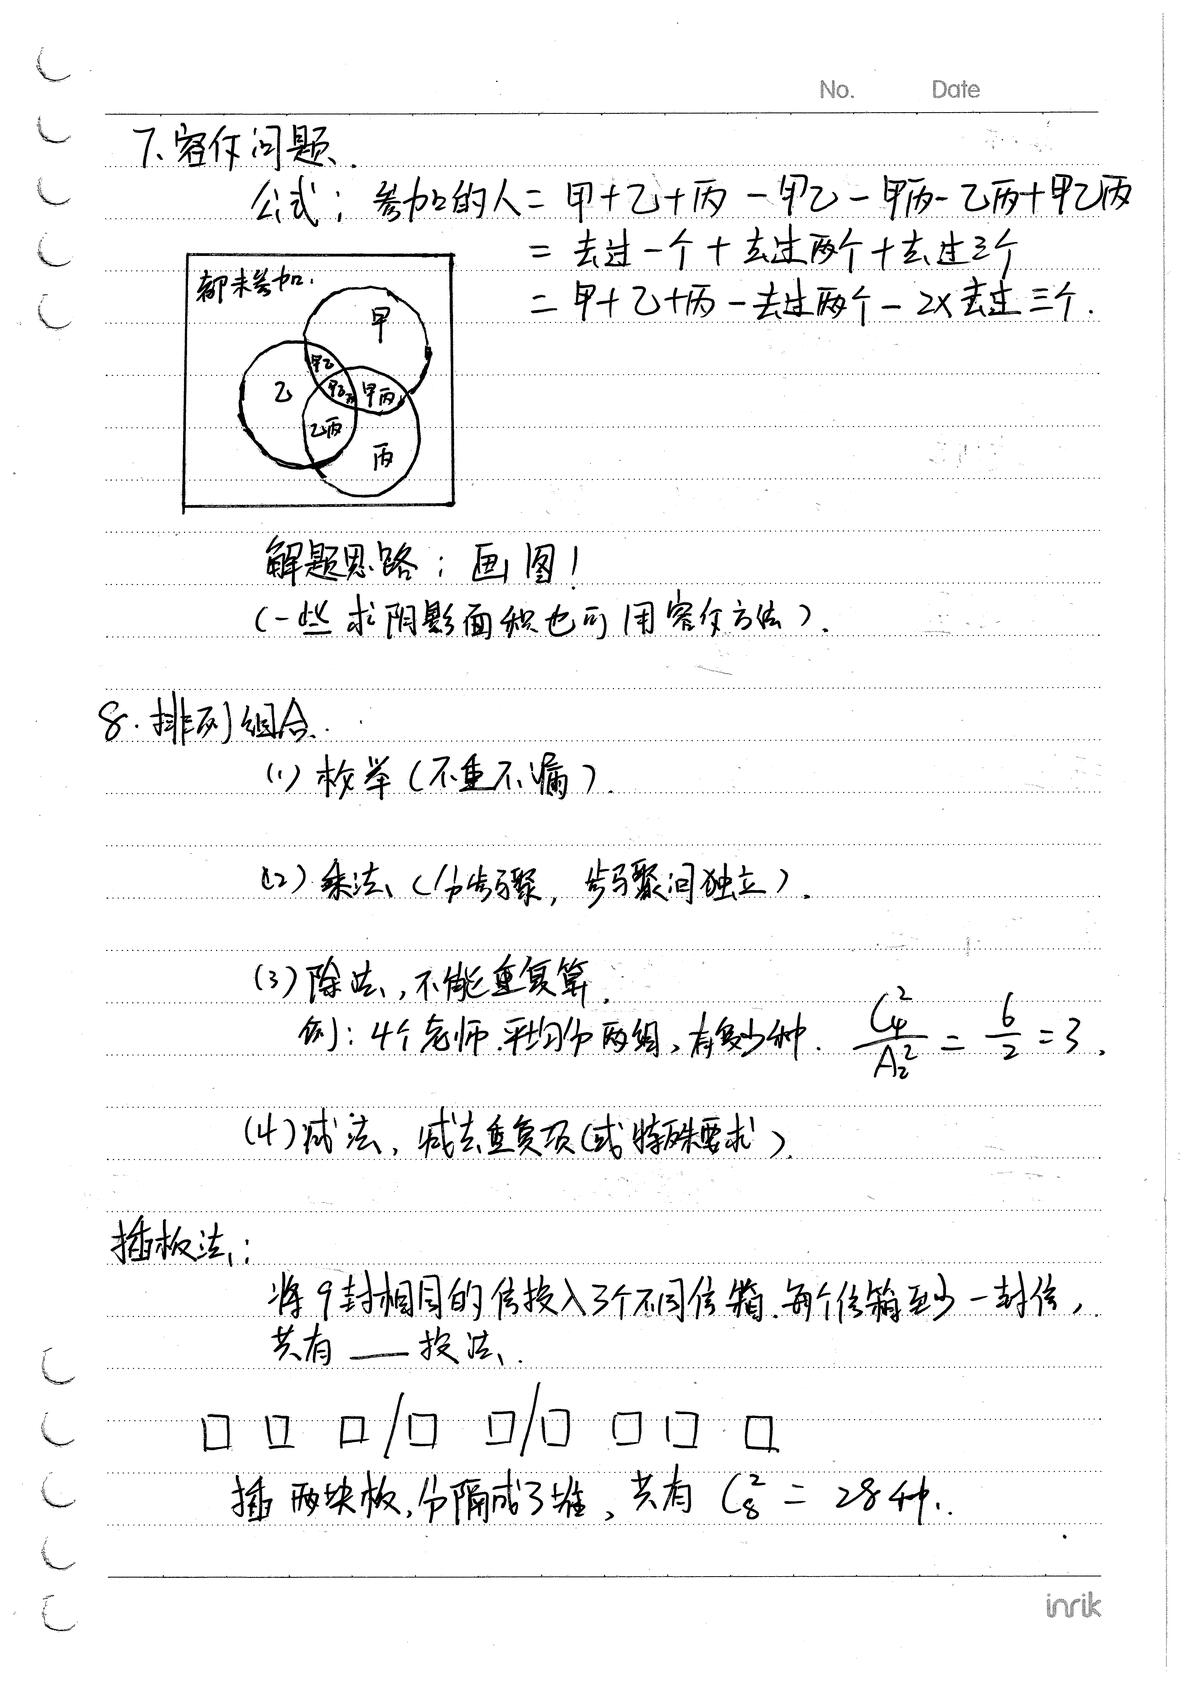 No. Date
7、容斥问题、
公式：参加的人＝甲＋乙＋丙－甲乙－甲丙－乙丙＋甲乙丙
＝去过一个＋去过两个＋去过三个
＝甲＋乙＋丙－去过两个－2×去过三个.
都未参加.
甲
甲乙
乙 甲乙丙 甲丙
乙丙
丙
解题思路：画图！
(一些求阴影面积也可用容斥方法).
8.排列组合.
(1) 枚举(不重不漏).
(2) 乘法、(分步骤，步骤间独立).
(3) 除法、,不能重复算.
例：4个老师.平均分两组、有多少种. C₄²/A₂² = 6/2 = 3.
(4) 减法，减去重复项(或特殊要求).
插板法、:
将9封相同的信投入3个不同信箱.每个信箱至少一封信，
共有 ___ 投法、.
□ □ □/□ □/□ □ □ □
插两块板,分隔成3堆、共有 C₈² = 28种.
inrik